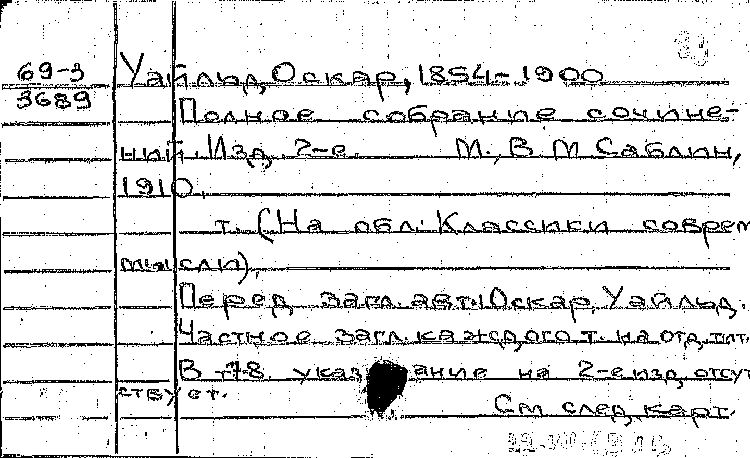 69-3
3689
Уайльд, Оскар, 1854-1900
Полное собрание сочине-
ний. Изд. 2-е. М., В. М. Саблин,
1910.
т. (На обл.: Классики соврем
мысли).
Перед загл. авт.: Оскар Уайльд.
Частное загл. каждого т. на отд. тит.
В т.8. указание на 2-е изд. отсут
ствует.
См. след. карт.